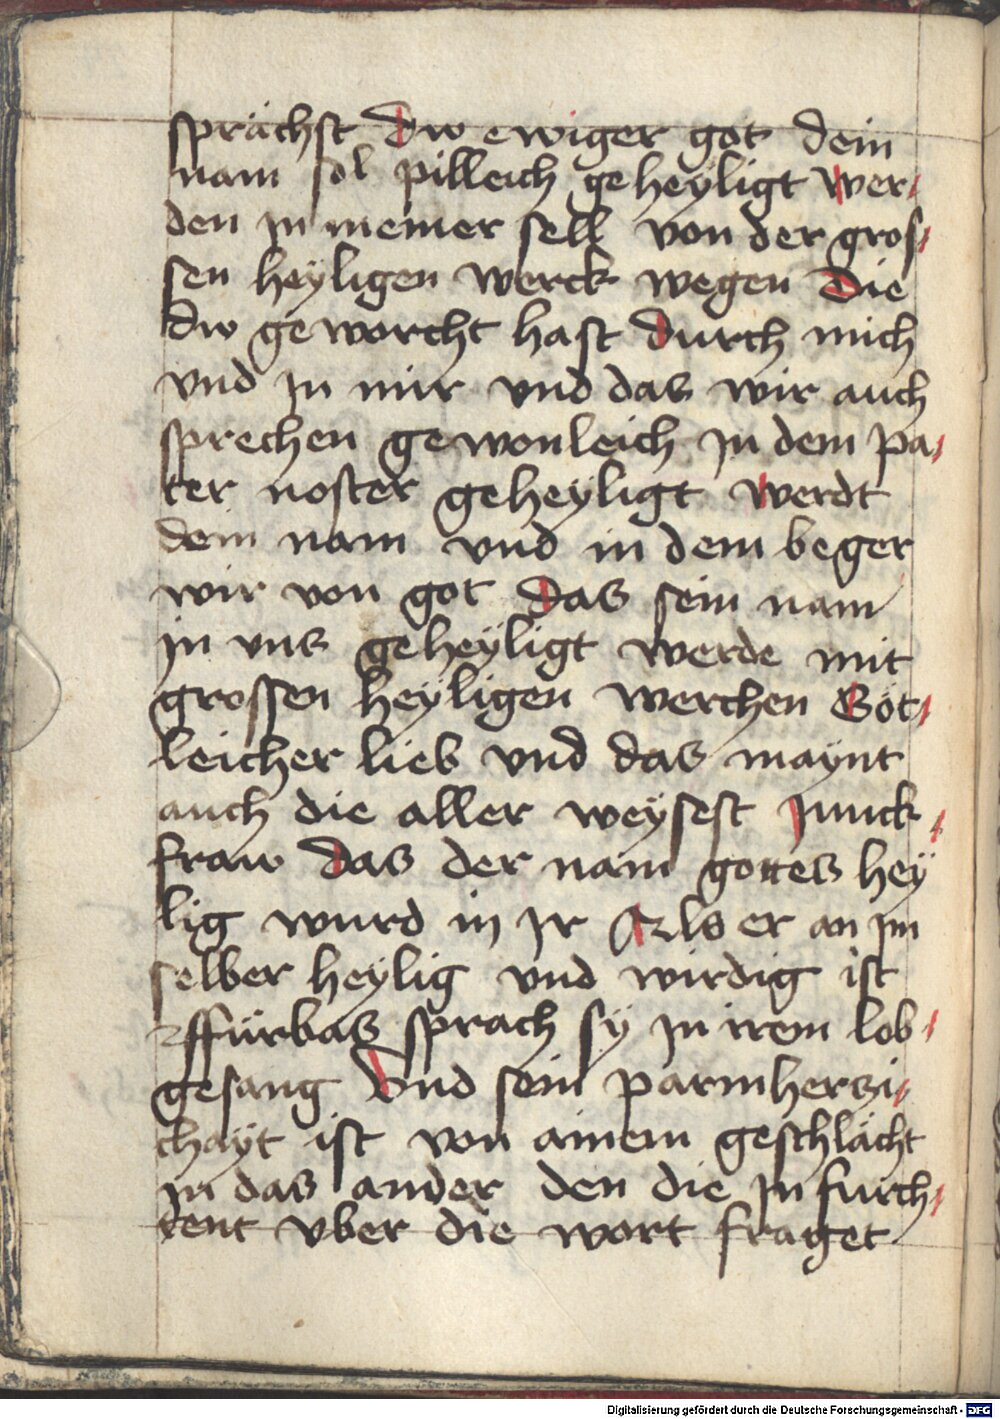 sprächst Dw ewiger got dein
nam sol pilleich geheÿligt Wer/
den jn meiner sell von der gros/
sen heÿligen werck wegen Die
dw geworcht hast Durch mich
vnd jn mir vnd das wir auch
sprechen gewonleich jn dem pa/
ter noster geheÿligt Werdt
dein nam vnd in dem beger
wir von got Das sein nam
jn vns geheÿligt werde mit
grossen heÿligen werchen Göt/
leicher lieb vnd das maÿnt
auch die aller weÿsest Junck/
fraw Das der nam gottes heÿ
lig wurd in jr Als er an jm
selber heÿlig vnd wirdig ist
ffürbas sprach sÿ jn irem lob/
gesang Vnd sein parmherczi/
chaÿt ist von ainem geschlächt
jn das ander den die jn furch/
tent vber die wort fraget
Digitalisierung gefördert durch die Deutsche Forschungsgemeinschaft - DFG